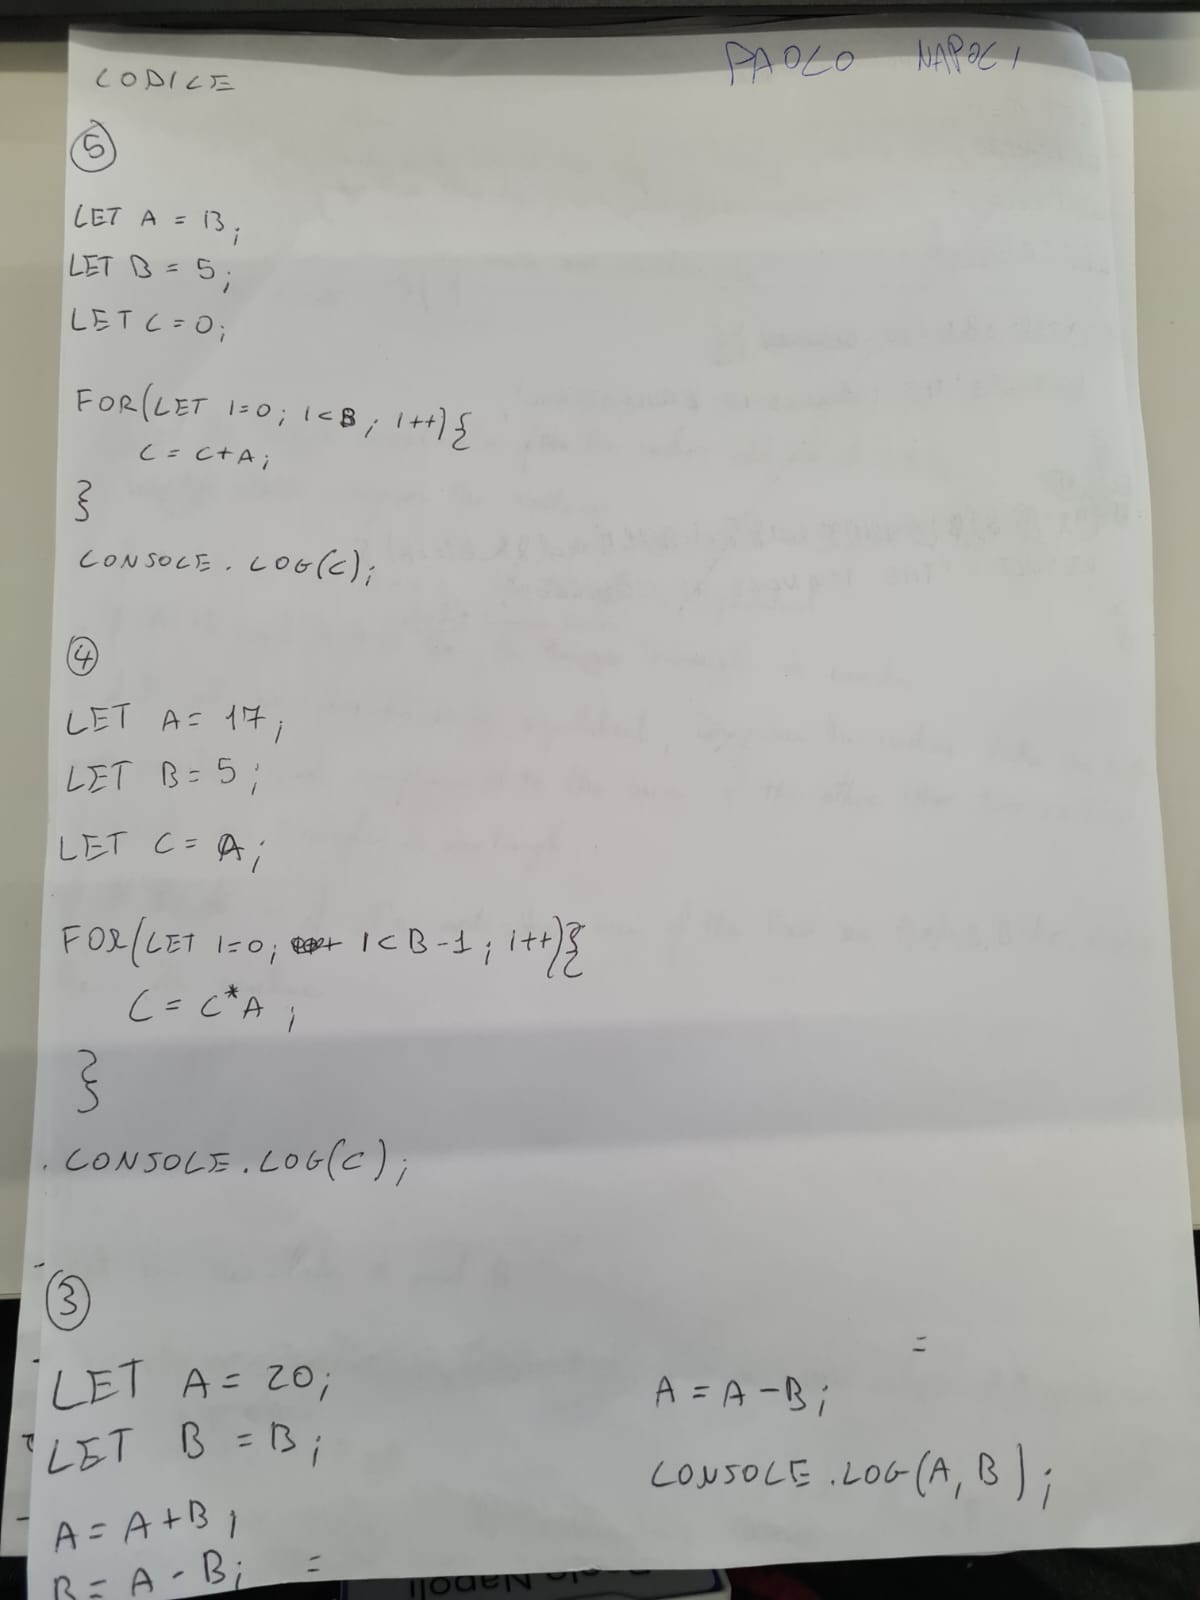 CODICE
PAOLO NAPOLI
5
LET A = 13;
LET B = 5;
LET C = 0;
FOR(LET I=0; I<B; I++){
C = C+A;
}
CONSOLE.LOG(C);
4
LET A = 17;
LET B = 5;
LET C = A;
FOR(LET I=0; I<B-1; I++){
C = C*A;
}
.CONSOLE.LOG(C);
3
LET A = 20;
LET B = B;
A = A+B;
B = A - B; =
=
A = A - B;
CONSOLE.LOG(A, B);
Napoli